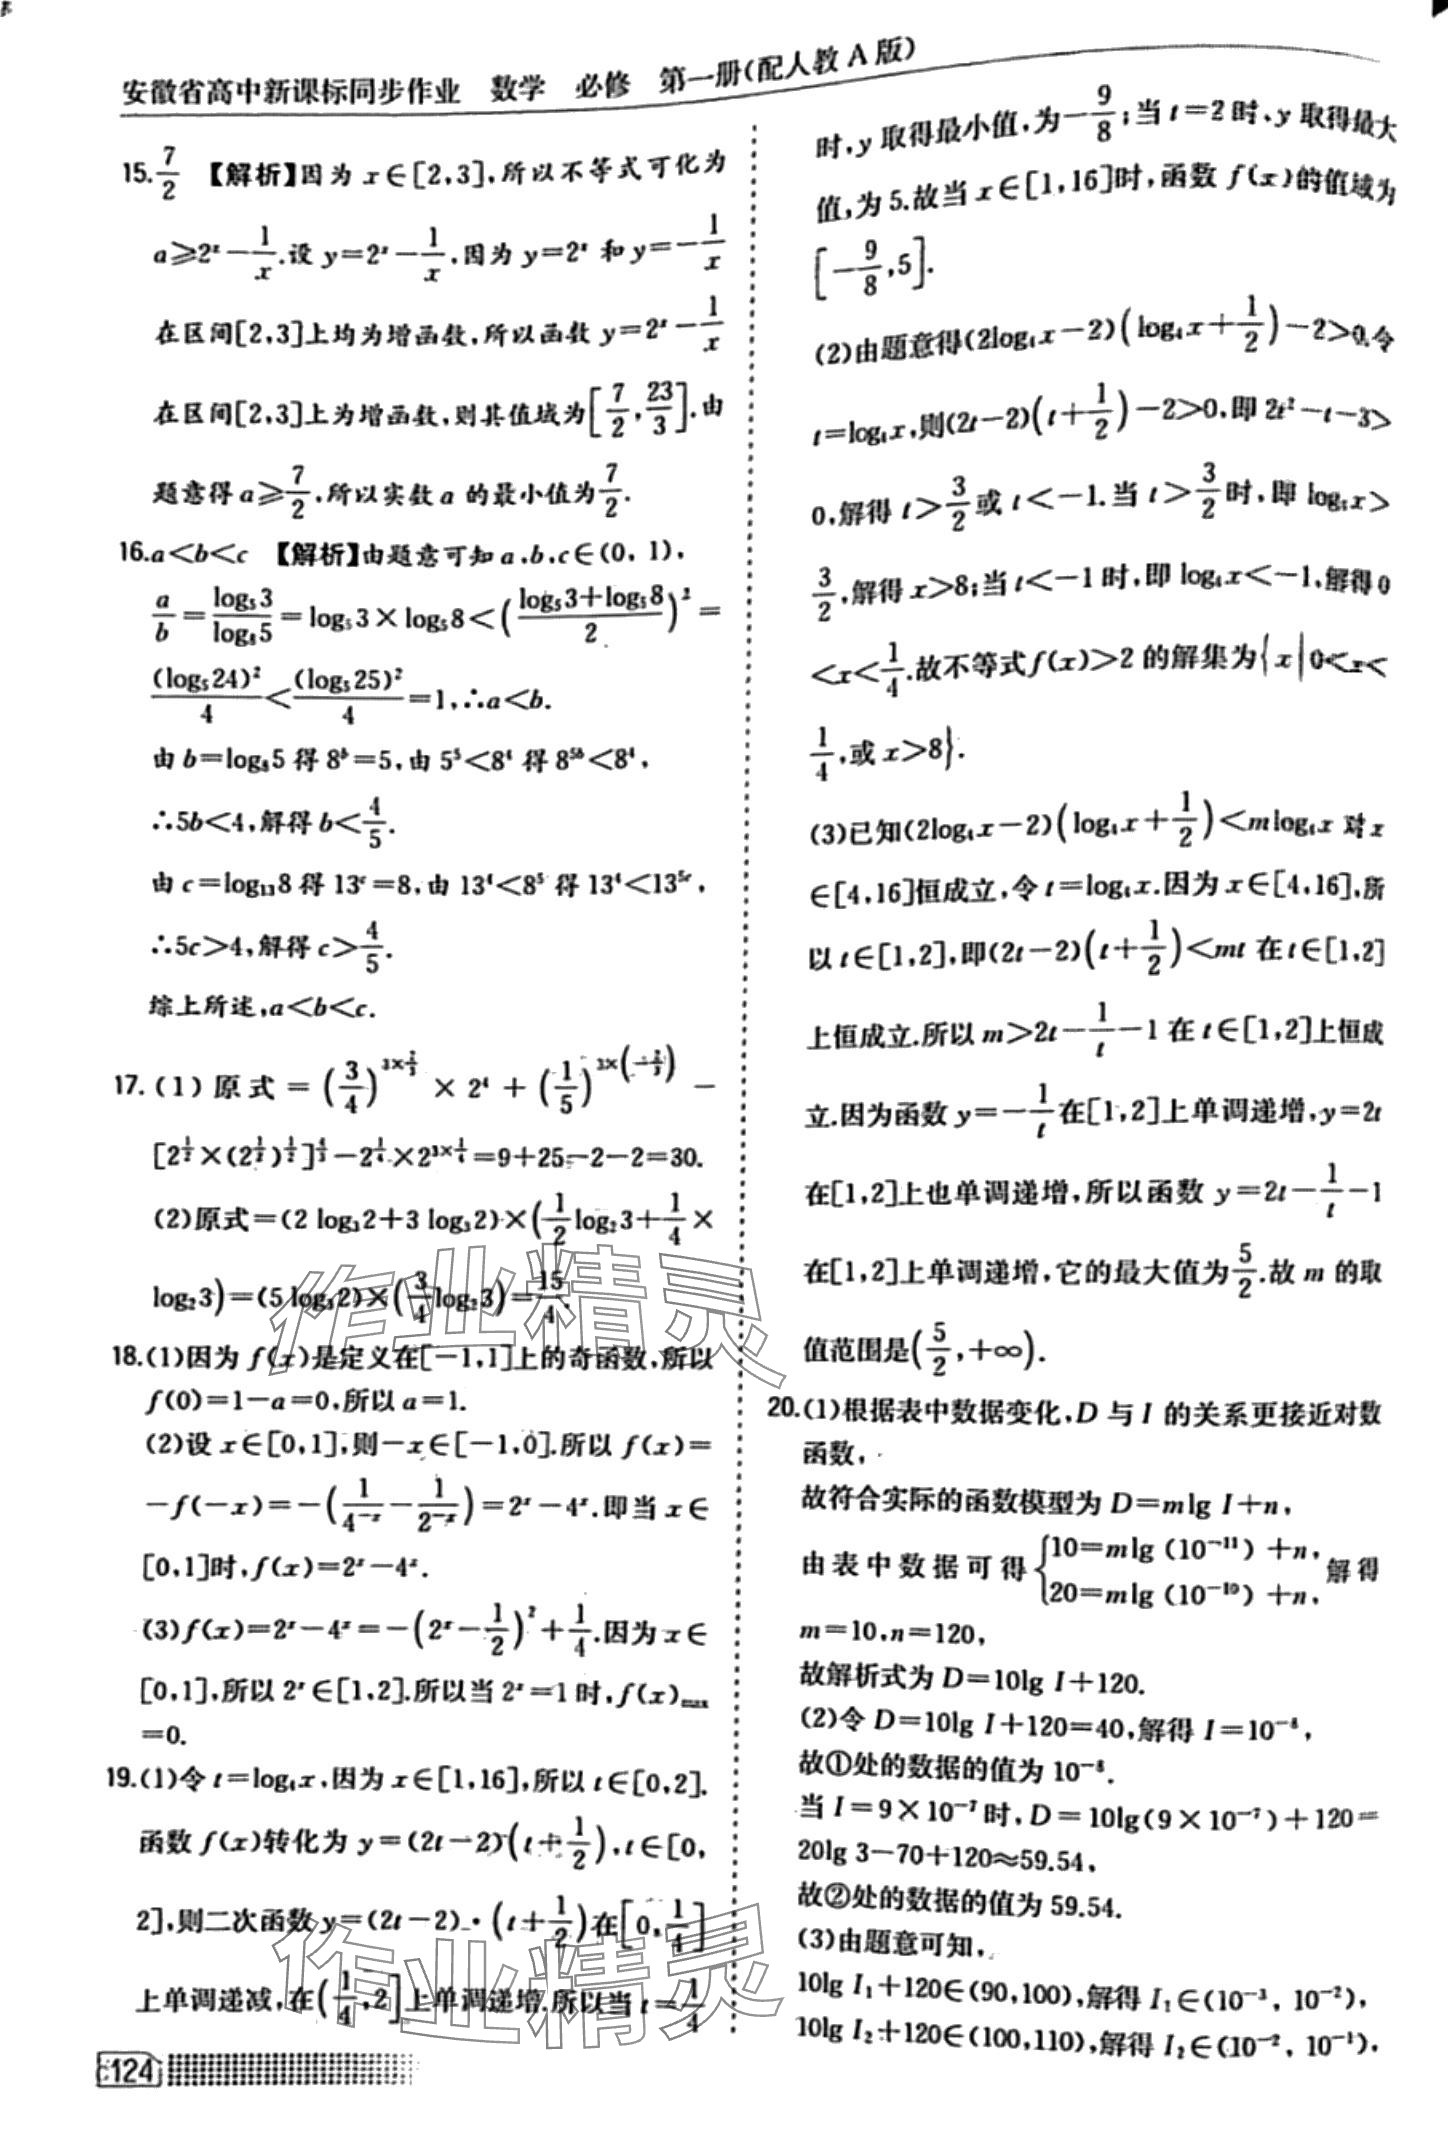 安徽省高中新课标同步作业 数学 必修 第一册(配人教 A 版)
15. 7/2 【解析】因为 x∈[2,3],所以不等式可化为
a≥2^x-1/x.设 y=2^x-1/x,因为 y=2^x 和 y=-1/x
在区间[2,3]上均为增函数,所以函数 y=2^x-1/x
在区间[2,3]上为增函数,则其值域为[7/2,23/3].由
题意得 a≥7/2,所以实数 a 的最小值为7/2.
16.a<b<c 【解析】由题意可知 a,b,c∈(0,1),
a/b=log₅3/log₈5=log₅3×log₅8<((log₅3+log₅8)/2)²=
(log₅24)²/4<(log₅25)²/4=1,∴a<b.
由 b=log₈5 得 8^b=5,由 5⁵<8⁴ 得 8^(5b)<8⁴,
∴5b<4,解得 b<4/5.
由 c=log₁₃8 得 13^c=8,由 13⁴<8⁵ 得 13⁴<13^(5c),
∴5c>4,解得 c>4/5.
综上所述,a<b<c.
17.(1)原式=(3/4)^(3×2/3)×2⁴+(1/5)^(3×(-2/3))-
[2^(1/2)×(2^(1/2))^(1/2)]^(4/3)-2^(1/4)×2^(3×1/4)=9+25-2-2=30.
(2)原式=(2 log₃2+3 log₃2)×(1/2 log₂3+1/4×
log₂3)=(5 log₃2)×(3/4 log₂3)=15/4.
18.(1)因为 f(x)是定义在[-1,1]上的奇函数,所以
f(0)=1-a=0,所以 a=1.
(2)设 x∈[0,1],则-x∈[-1,0].所以 f(x)=
-f(-x)=-(1/4^(-x)-1/2^(-x))=2^x-4^x.即当 x∈
[0,1]时,f(x)=2^x-4^x.
(3)f(x)=2^x-4^x=-(2^x-1/2)²+1/4.因为 x∈
[0,1],所以 2^x∈[1,2].所以当 2^x=1 时,f(x)max
=0.
19.(1)令 t=log₄x,因为 x∈[1,16],所以 t∈[0,2].
函数 f(x)转化为 y=(2t-2)(t+1/2),t∈[0,
2],则二次函数 y=(2t-2)·(t+1/2)在[0,1/4]
上单调递减,在(1/4,2]上单调递增.所以当 t=1/4
124
时,y 取得最小值,为-9/8;当 t=2 时,y 取得最大
值,为 5.故当 x∈[1,16]时,函数 f(x)的值域为
[-9/8,5].
(2)由题意得(2log₄x-2)(log₄x+1/2)-2>0,令
t=log₄x,则(2t-2)(t+1/2)-2>0,即 2t²-t-3>
0,解得 t>3/2或 t<-1.当 t>3/2时,即 log₄x>
3/2,解得 x>8;当 t<-1 时,即 log₄x<-1,解得 0
<x<1/4.故不等式 f(x)>2 的解集为{x|0<x<
1/4,或 x>8}.
(3)已知(2log₄x-2)(log₄x+1/2)<mlog₄x 对 x
∈[4,16]恒成立,令 t=log₄x.因为 x∈[4,16],所
以 t∈[1,2],即(2t-2)(t+1/2)<mt 在 t∈[1,2]
上恒成立.所以 m>2t-1/t-1 在 t∈[1,2]上恒成
立.因为函数 y=-1/t在[1,2]上单调递增,y=2t
在[1,2]上也单调递增,所以函数 y=2t-1/t-1
在[1,2]上单调递增,它的最大值为5/2.故 m 的取
值范围是(5/2,+∞).
20.(1)根据表中数据变化,D 与 I 的关系更接近对数
函数,
故符合实际的函数模型为 D=mlg I+n,
由表中数据可得{10=mlg(10⁻¹¹)+n, 20=mlg(10⁻¹⁰)+n,解得
m=10,n=120,
故解析式为 D=10lg I+120.
(2)令 D=10lg I+120=40,解得 I=10⁻⁸,
故①处的数据的值为 10⁻⁸.
当 I=9×10⁻⁷时,D=10lg(9×10⁻⁷)+120=
20lg 3-70+120≈59.54,
故②处的数据的值为 59.54.
(3)由题意可知,
10lg I₁+120∈(90,100),解得 I₁∈(10⁻³,10⁻²),
10lg I₂+120∈(100,110),解得 I₂∈(10⁻²,10⁻¹),
作业精灵
作业精灵